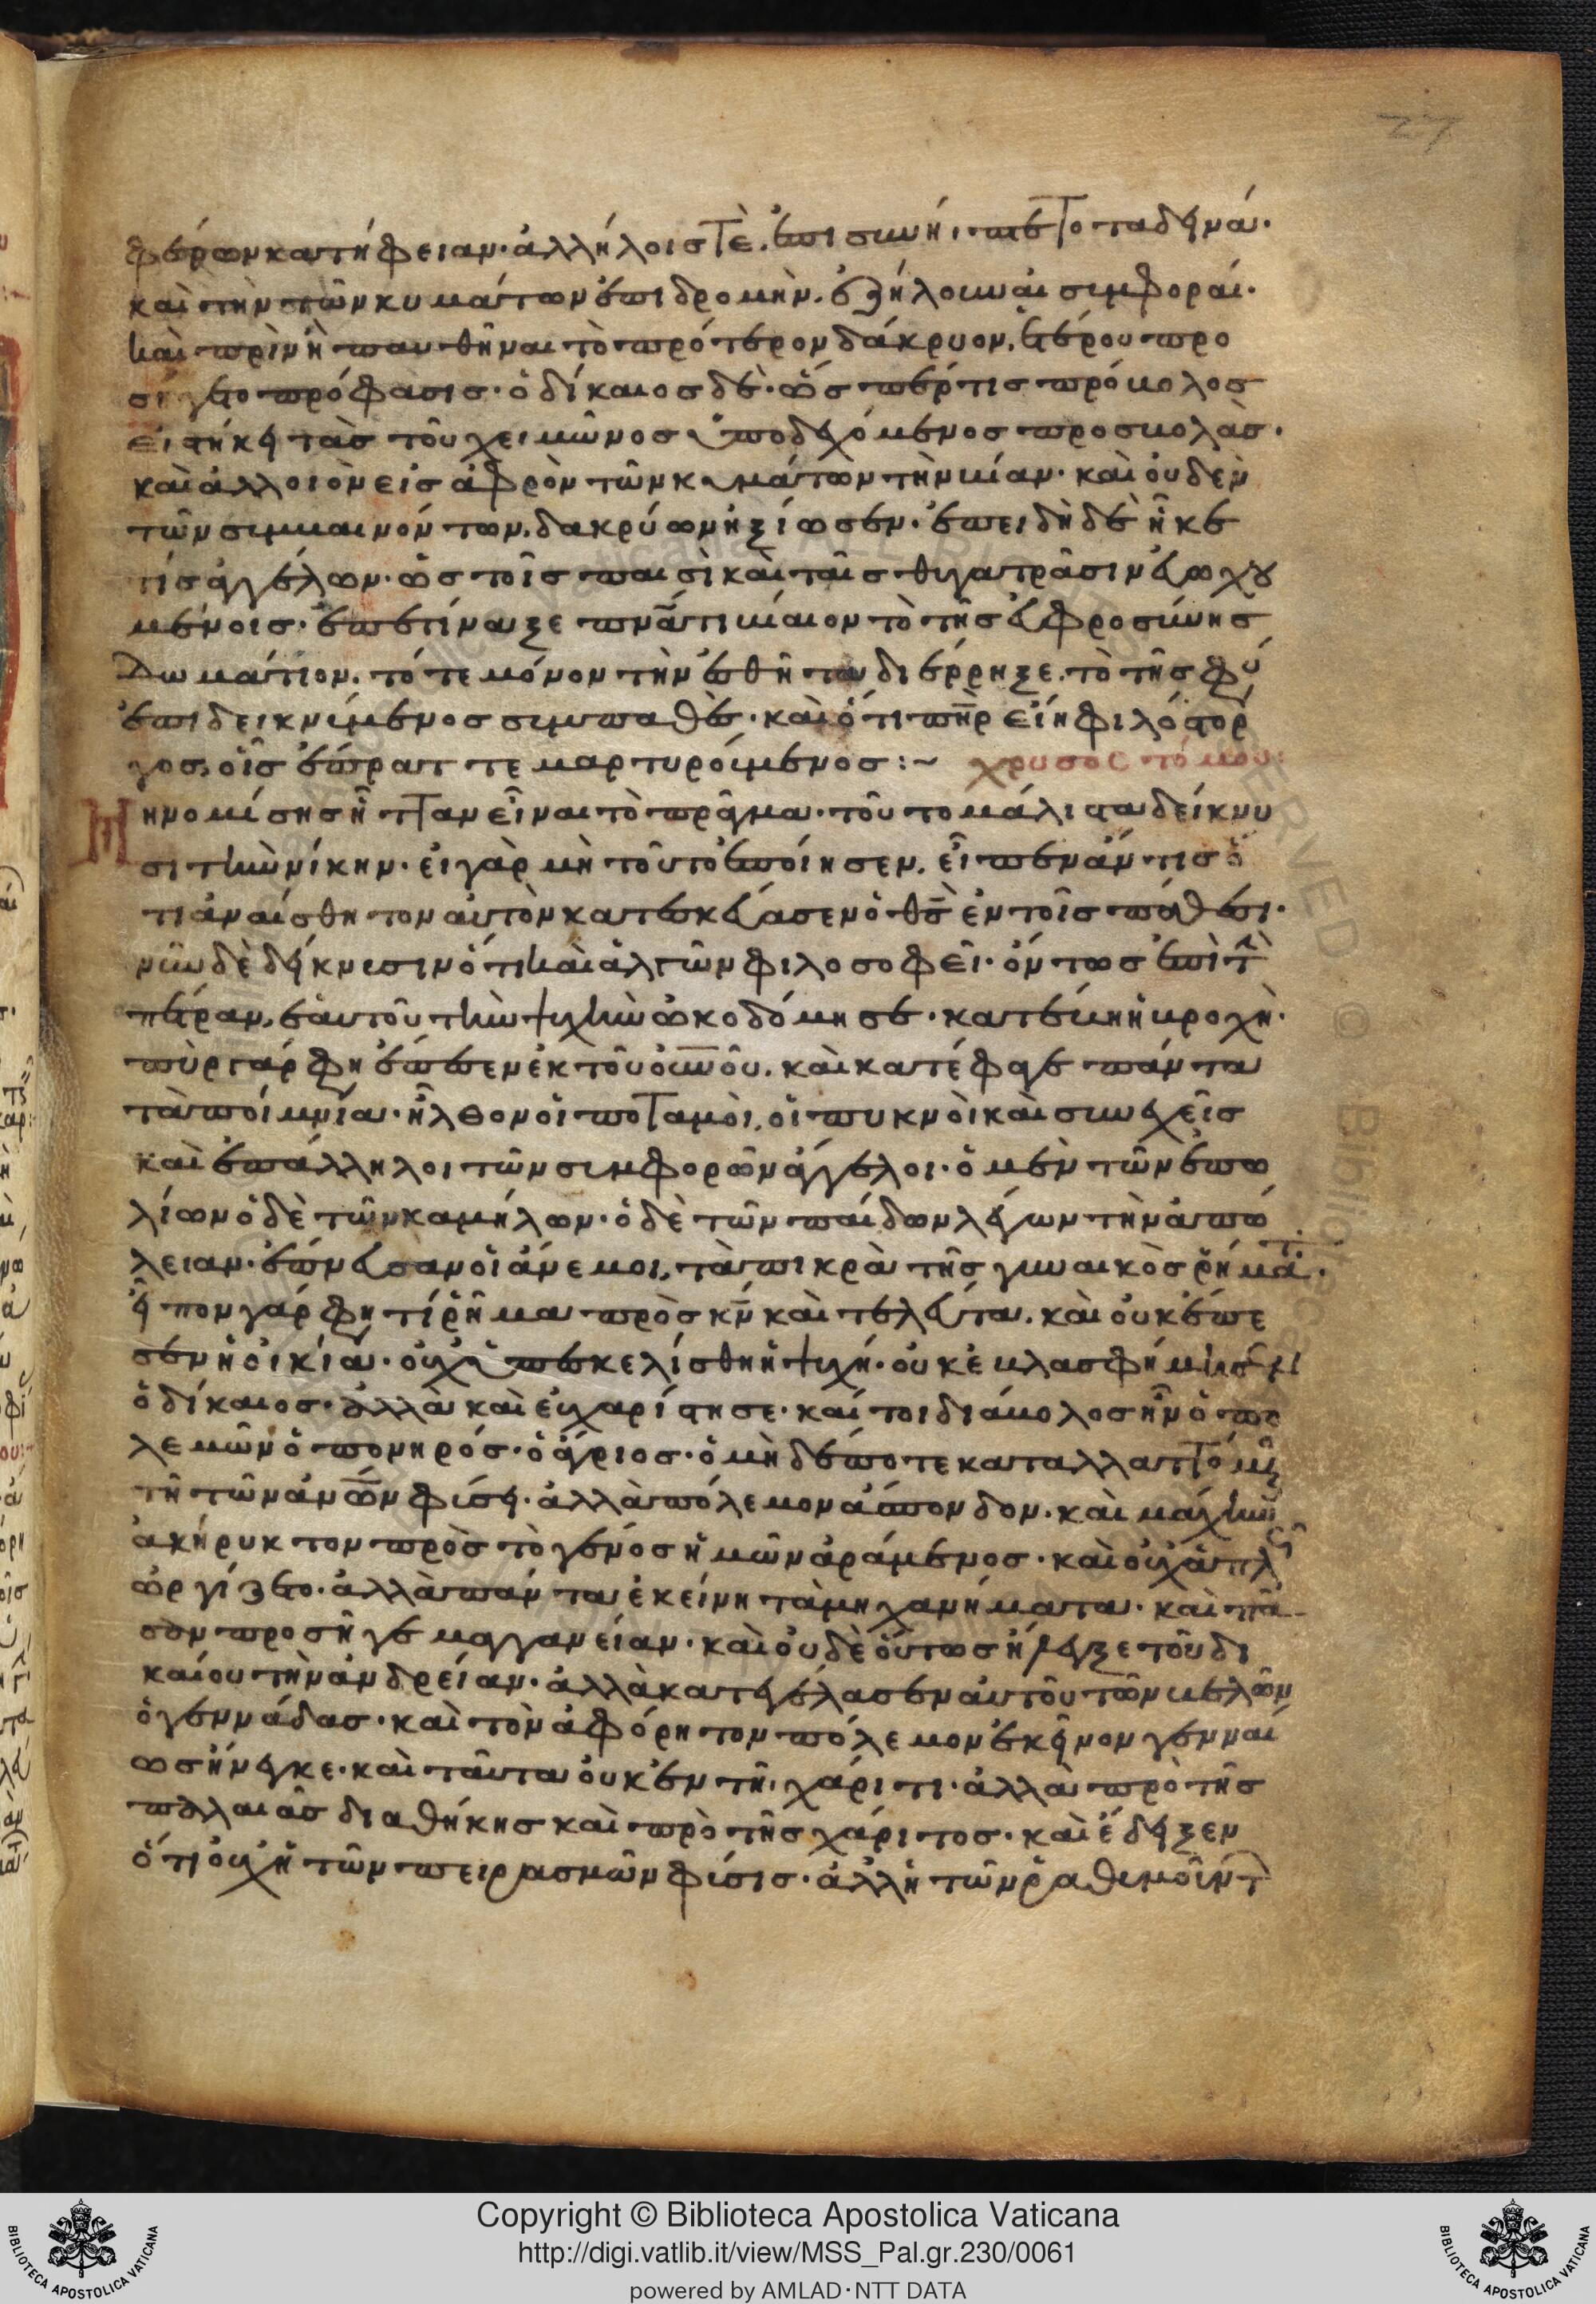 27
φέρων κατήφειαν· ἀλλήλοις τὲ, ἐπισυνήπτετο τὰ δεινά·
καὶ τὴν τῶν κυμάτων ἐπιδρομὴν, ἐζήλουν αἱ συμφοραί·
καὶ πρὶν ἢ παυθῆναι τὸ πρότερον δάκρυον, ἑτέρου προ
σήγετο πρόφασις· ὁ δίκαιος δὲ· ὥσπερ τις πρόβολος
εἱστήκει τὰς τοῦ χειμῶνος ὑποδεχόμενος προσβολὰς·
καὶ ἀλλοιῶν εἰς ἀφρὸν τῶν κυμάτων τὴν βίαν· καὶ οὐδὲν
τῶν συμβαινόντων, δακρύων ἠξίωσεν· ἐπειδὴ δὲ ἧκέ
τις ἀγγέλλων· ὡς τοῖς παισὶ καὶ ταῖς θυγατράσιν εὐωχου
μένοις· ἐπετίναξε πνεῦμά τι βίαιον τὸ τῆς εὐφροσύνης
δωμάτιον, τότε μόνον τὴν ἐσθῆτα διέρρηξε, τὸ τῆς φύ
ἐπιδεικνύμενος συμπαθὲς· καὶ ὅτι πὴρ εἴη φιλόστορ
γος, οἷς ἔπραττε μαρτυρούμενος:~ χρυσοστόμου:
Μὴ νομίσῃς ἧτταν εἶναι τὸ πρᾶγμα· τοῦτο μάλιστα δείκνυ
σι τὴν νίκην· εἰ γὰρ μὴ τοῦτο ἐποίησεν, εἶπεν ἄν τις ὅ
τι ἀναίσθητον αὐτὸν κατεσκεύασεν ὁ θς ἐν τοῖς πάθεσι·
νῦν δὲ δείκνυσιν ὅτι καὶ ἀλγῶν φιλοσοφεῖ· ὄντως ἐπὶ τὴν
πέτραν, ἑαυτοῦ τὴν ψυχὴν ὠκοδόμησε· κατέβη ἡ βροχὴ·
πῦρ γάρ φη ἔπεσεν ἐκ τοῦ οὐνοῦ, καὶ κατέφαγε πάντα
τὰ ποίμνια· ἦλθον οἱ ποταμοὶ, οἱ πυκνοὶ καὶ συνεχεῖς
καὶ ἐπάλληλοι τῶν συμφορῶν ἄγγελοι· ὁ μὲν τῶν ἐπω
λίων ὁ δὲ τῶν καμήλων· ὁ δὲ τῶν παίδων λέγων τὴν ἀπώ
λειαν· ἔπνευσαν οἱ ἄνεμοι, τὰ πικρὰ τῆς γυναικὸς ῥήματα·
εἶπον γάρ φη τί ῥῆμα πρὸς κν καὶ τελεύτα, καὶ οὐκ ἔπε
σεν ἡ οἰκία· οὐχ ὑπεσκελίσθη ἡ ψυχή· οὐκ ἐβλασφήμησεν
ὁ δίκαιος· ἀλλὰ καὶ εὐχαρίστησε· καίτοι διάβολος ἦν ὁ πο
λεμῶν ὁ πονηρός· ὁ ἄγριος· ὁ μηδέποτε καταλλαττόμ
τῇ τῶν ἀνων φύσει· ἀλλὰ πόλεμον ἄσπονδον· καὶ μάχην
ἀκήρυκτον πρὸς τὸ γένος ἡμῶν ἀράμενος· καὶ οὐχ ἁπλῶς
ὠργίζετο· ἀλλὰ πάντα ἐκείνῃ τὰ μηχανήματα· καὶ πᾶ
σαν προσῆγε μαγγανείαν· καὶ οὐδὲ οὕτως ἤλεγξε τοῦ δι
καίου τὴν ἀνδρείαν· ἀλλὰ κατεγέλασεν αὐτοῦ τῶν βελῶν
ὁ γεννάδας· καὶ τὸν ἀφόρητον πόλεμον ἐκεῖνον γενναί
ως ἤνεγκε· καὶ ταῦτα οὐκ ἐν τῇ χάριτι· ἀλλὰ πρὸ τῆς
παλαιᾶς διαθήκης καὶ πρὸ τῆς χάριτος· καὶ ἔδειξεν
ὅτι οὐχ ἡ τῶν πειρασμῶν φύσις· ἀλλ' ἡ τῶν ῥαθυμούντ
Copyright © Biblioteca Apostolica Vaticana
http://digi.vatlib.it/view/MSS_Pal.gr.230/0061
powered by AMLAD·NTT DATA